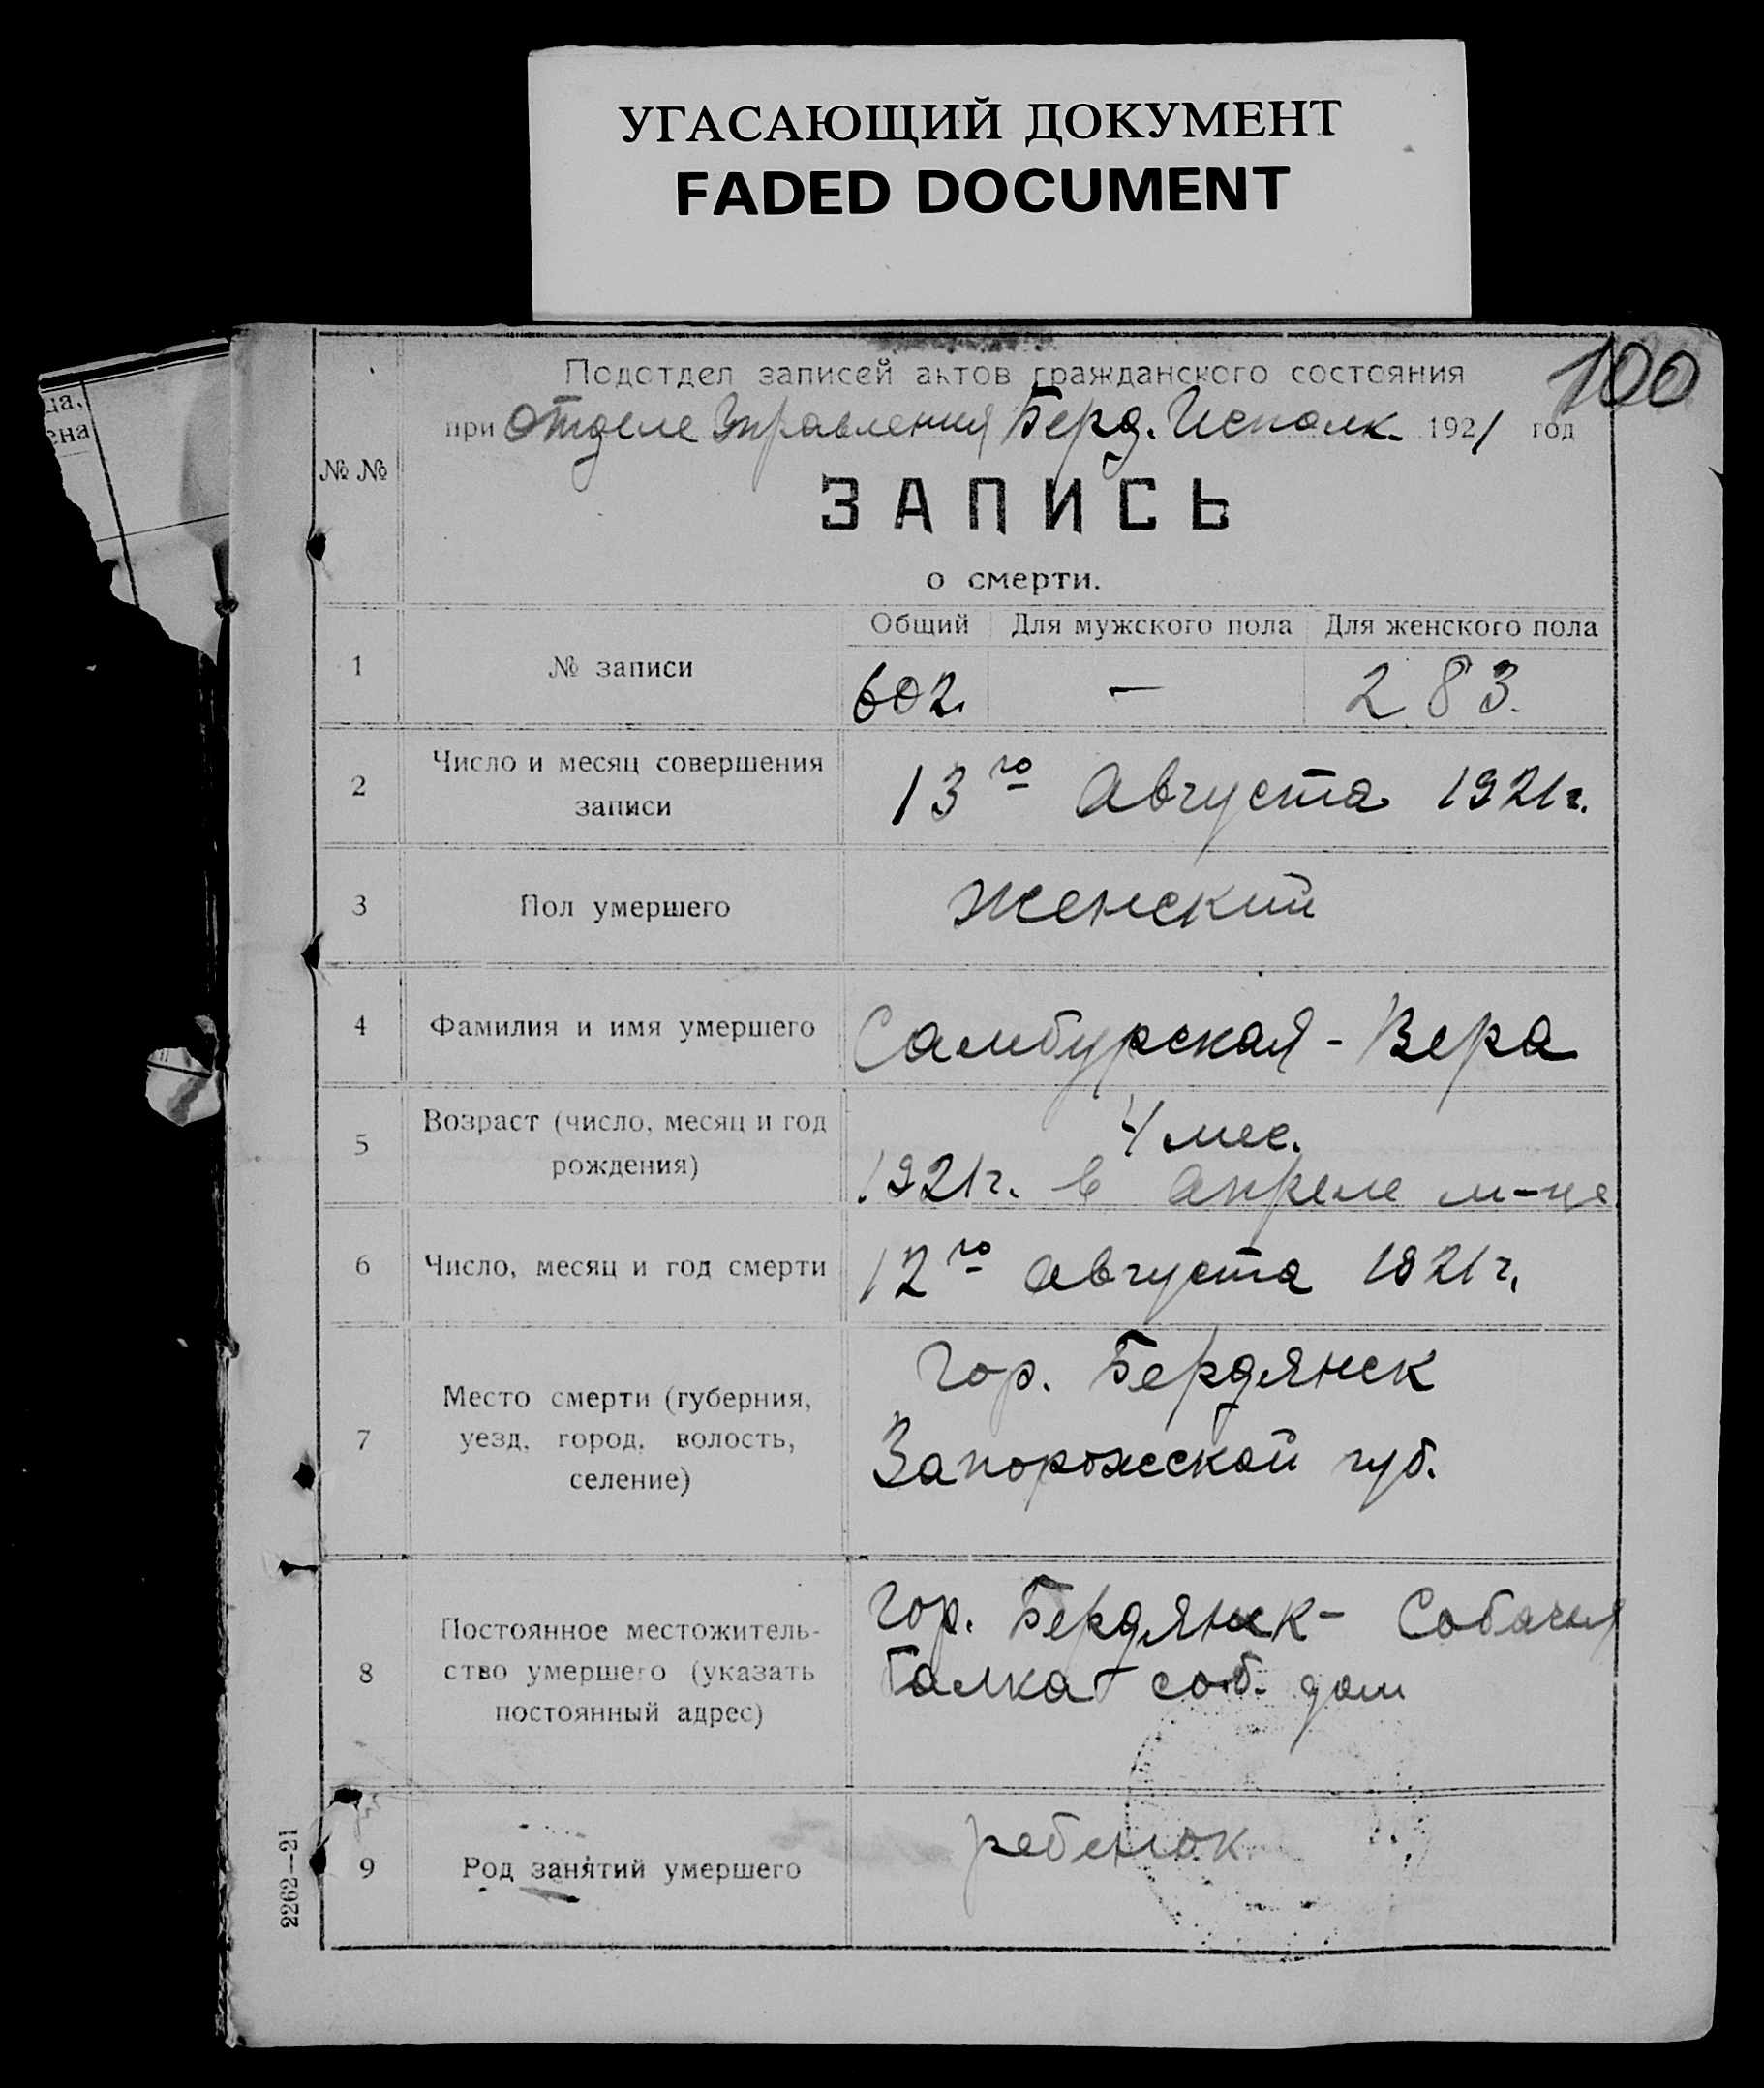 УГАСАЮЩИЙ ДОКУМЕНТ
FADED DOCUMENT
100
Подотдел записей актов гражданского состояния
при Отделе Управления Берд. Исполк. 1921 год
№ №
ЗАПИСЬ
о смерти.
Общий Для мужского пола Для женского пола
1 № записи 602. — 283.
2 Число и месяц совершения
записи
13го Августа 1921г.
3 Пол умершего Женский
4 Фамилия и имя умершего Самбурская - Вера
5 Возраст (число, месяц и год
рождения)
4 мес.
1921г. в Апреле м-це
6 Число, месяц и год смерти 12го Августа 1921г.
7 Место смерти (губерния,
уезд, город, волость,
селение)
Гор. Бердянск
Запорожской губ.
8 Постоянное местожитель-
ство умершего (указать
постоянный адрес)
Гор. Бердянск - Собачья
Балка - соб. дом
9 Род занятий умершего ребенок
2262—21
ца,
ена